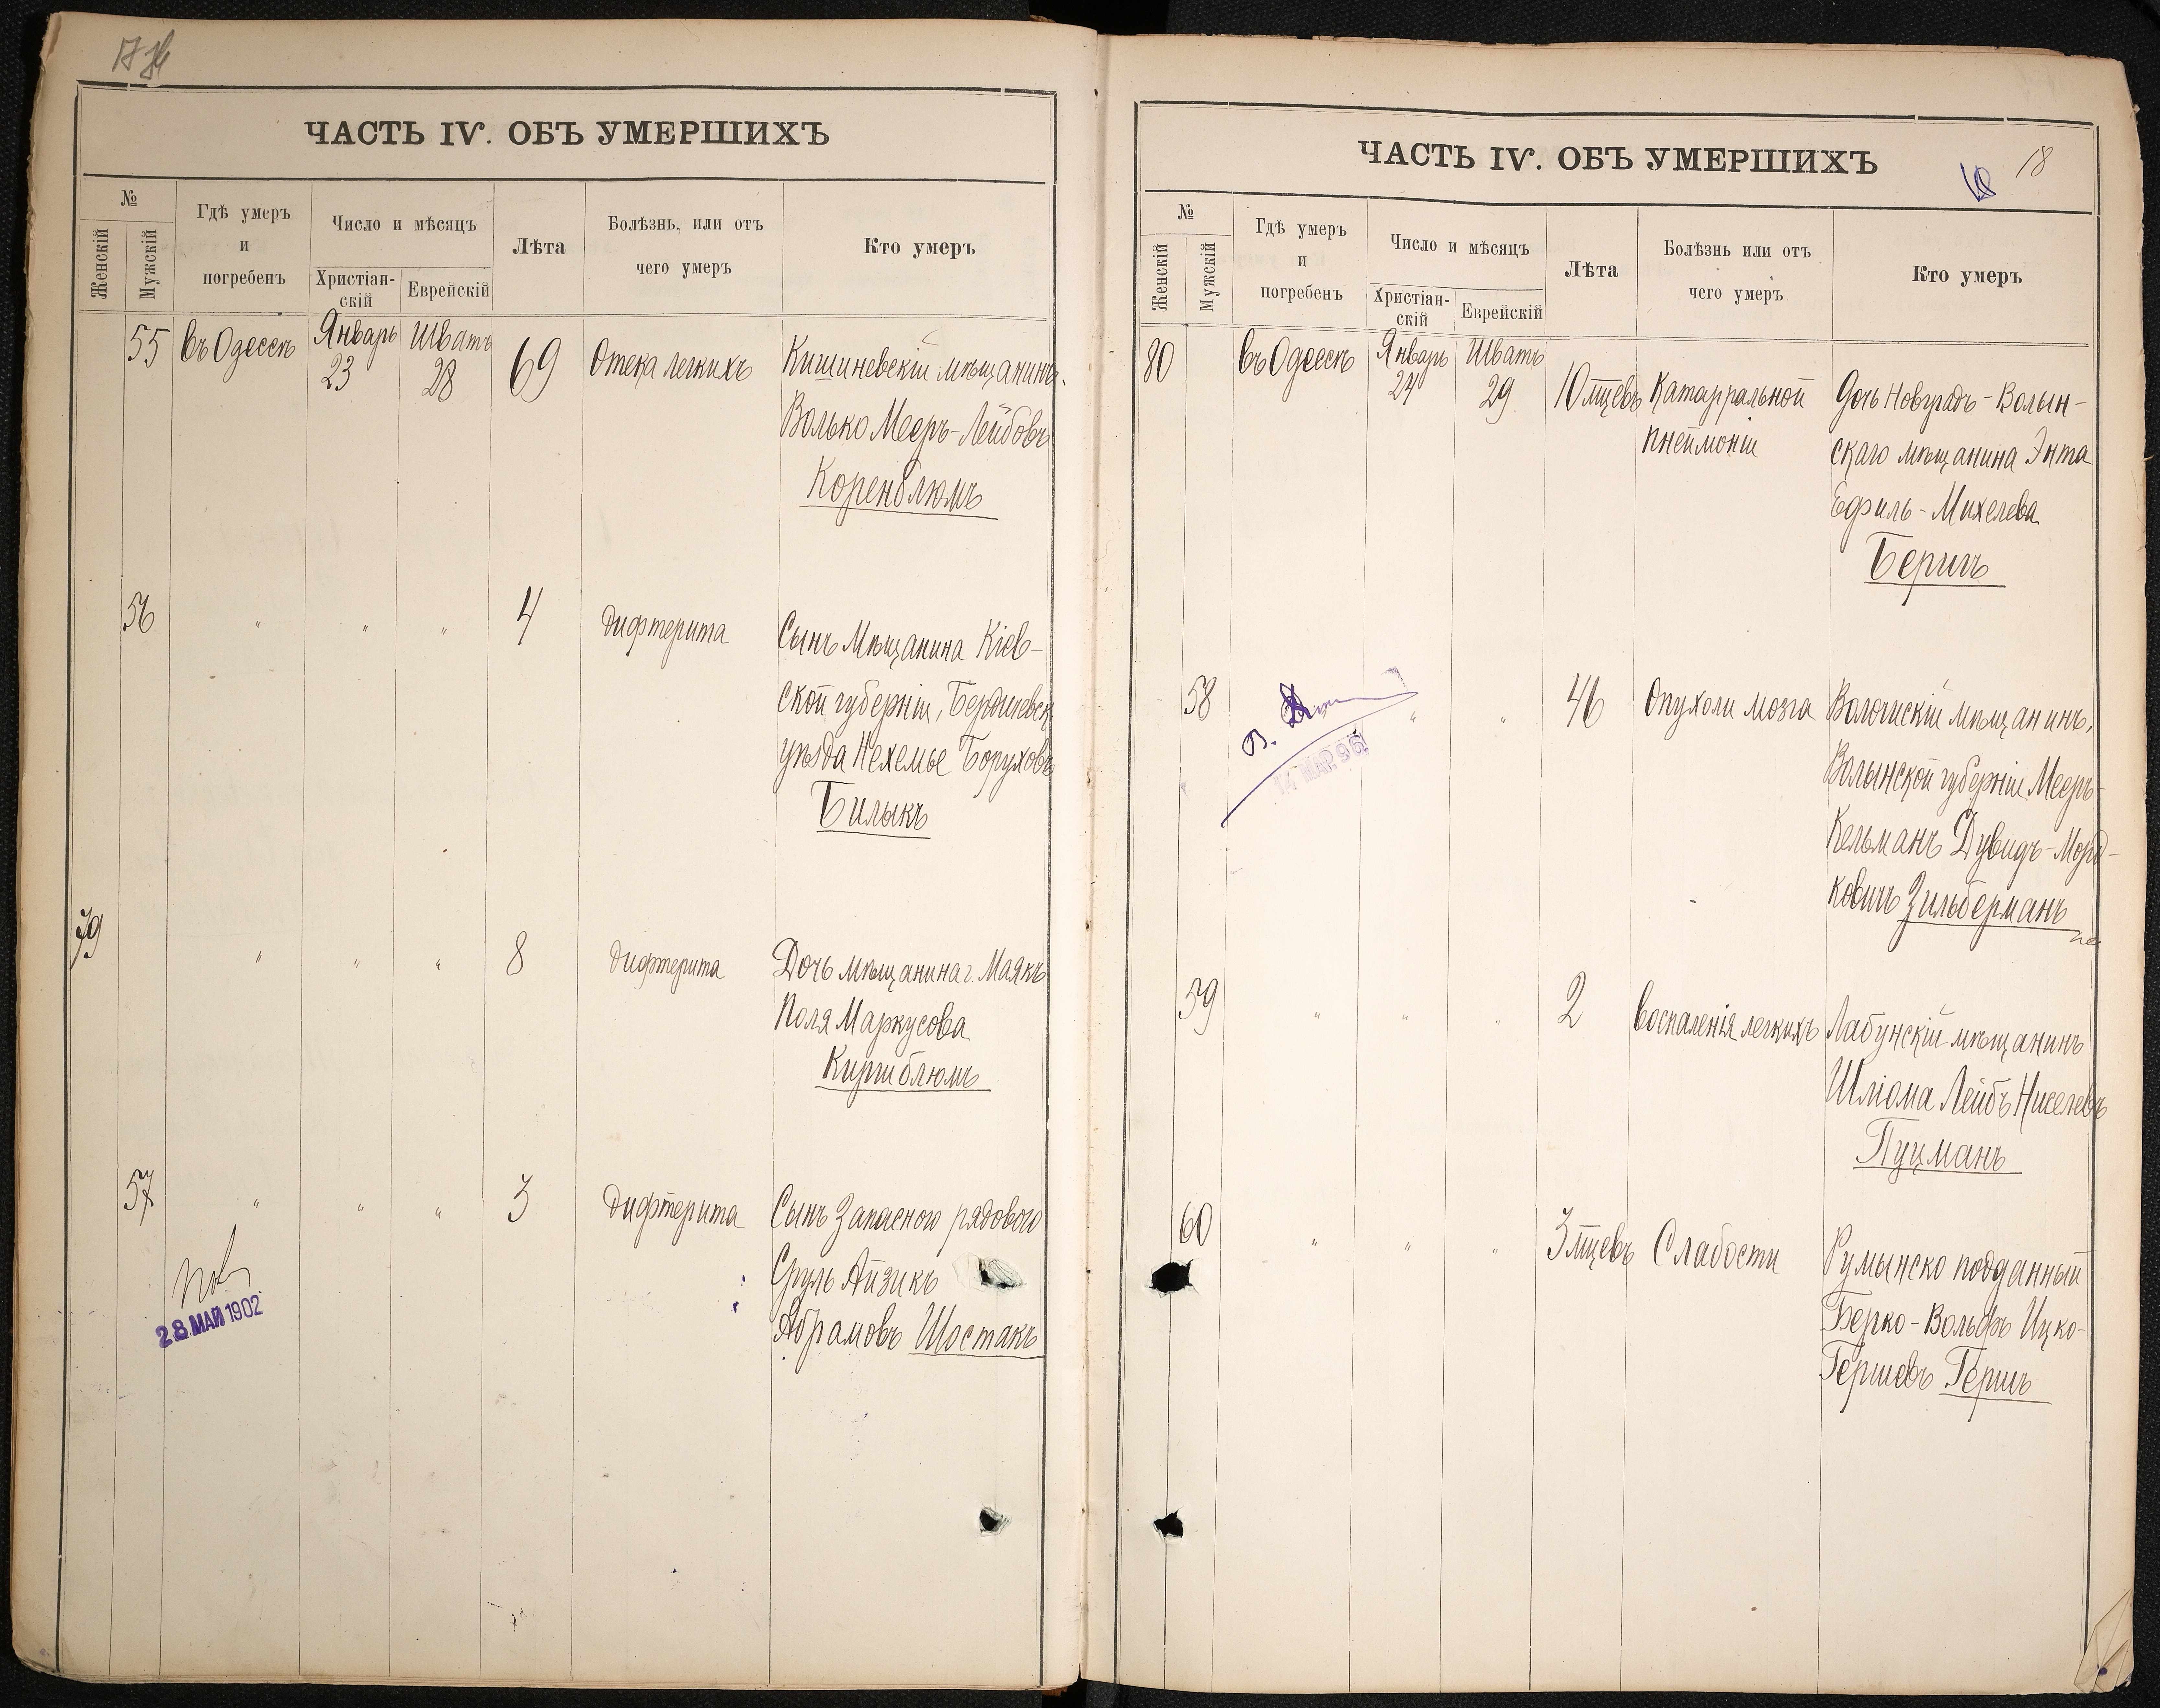 ЧАСТЬ IV. ОБЪ УМЕРШИХЪ
№
Женскій
Мужскій
Гдѣ умеръ
и
погребенъ
Число и мѣсяцъ
Христіан-
скій
Еврейскій
Лѣта
Болѣзнь, или отъ
чего умеръ
Кто умеръ
55 въ Одессѣ Январь 23 Шватъ 28 69 Отека легкихъ Кишиневскій мѣщанинъ
Волько Мееръ-Лейбовъ
Коренблюмъ
56 " " " 4 дифтерита Сынъ Мѣщанина Кіев-
ской губерніи, Бердичевск
уѣзда Нехемье Боруховъ
Билыкъ
79 " " " 8 дифтерита Дочь мѣщанина г. Маякъ
Поля Маркусова
Киршблюмъ
57 " " " 3 дифтерита Сынъ Запасного рядового
Сруль Айзикъ
Абрамовъ Шостакъ
28 МАЙ 1902
ЧАСТЬ IV. ОБЪ УМЕРШИХЪ
18
№
Женскій
Мужскій
Гдѣ умеръ
и
погребенъ
Число и мѣсяцъ
Христіан-
скій
Еврейскій
Лѣта
Болѣзнь или отъ
чего умеръ
Кто умеръ
80 въ Одессѣ Январь 24 Шватъ 29 10 мцевъ Катарральной Дочь Новградъ-Волын-
пнеймоніи скаго мѣщанина Энта
Ефиль-Михелева
Беришъ
58 " " 46 Опухоли мозга Волочискій мѣщанинъ,
Волынской губерніи Мееръ-
Кельманъ Дувидъ-Морд-
ковичъ Зильберманъ
14 МАР 96
59 " " " 2 Воспаленія легкихъ Лабунскій мѣщанинъ
Шліома ЛейбъНиселевъ
Пуцманъ
60 " " " 3 мцевъ Слабости Румынско подданный
Берко-Вольфъ Ицко-
Гершевъ Гершъ